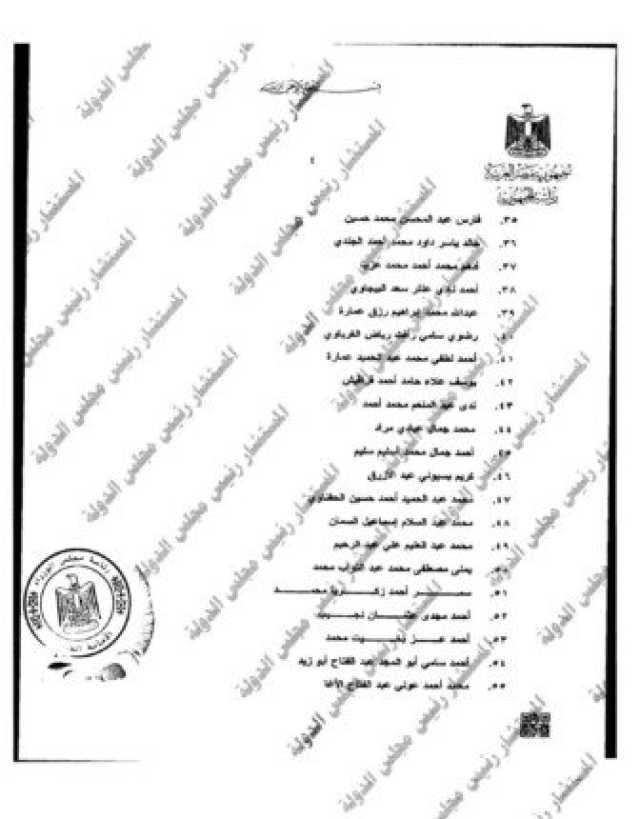 بسم الله الرحمن الرحيم
جمهورية مصر العربية
رئاسة الجمهورية
٤
٣٥. فارس عبد المحسن محمد حسين
٣٦. خالد ياسر داود محمد أحمد الجندي
٣٧. أدهم محمد أحمد محمد عزب
٣٨. أحمد نادي عنتر سعد البيجاوي
٣٩. عبدالله محمد إبراهيم رزق عمارة
٤٠. رضوى سامي رأفت رياض الغرباوي
٤١. أحمد لطفي محمد عبد الحميد عمارة
٤٢. يوسف علاء حامد أحمد
٤٣. ندى عبد المنعم محمد أحمد
٤٤. محمد جمال عبادي مراد
٤٥. أحمد جمال محمد اسليم سليم
٤٦. كريم بسيوني عبد الرازق
٤٧. محمد عبد الحميد أحمد حسين الحفناوي
٤٨. محمد عبد السلام إسماعيل السمان
٤٩. محمد عبد العليم علي عبد الرحيم
٥٠. يمنى مصطفى محمد عبد التواب محمد
٥١. سمر أحمد زكريا محمد
٥٢. أحمد مجدي عثمان نجيب
٥٣. أحمد عز بخيت محمد
٥٤. أحمد سامي أبو المجد عبد الفتاح أبو زيد
٥٥. محمد أحمد عوني عبد الفتاح الأغا
رئاسة مجلس الوزراء
الأمانة العامة
المستشار رئيس مجلس الدولة